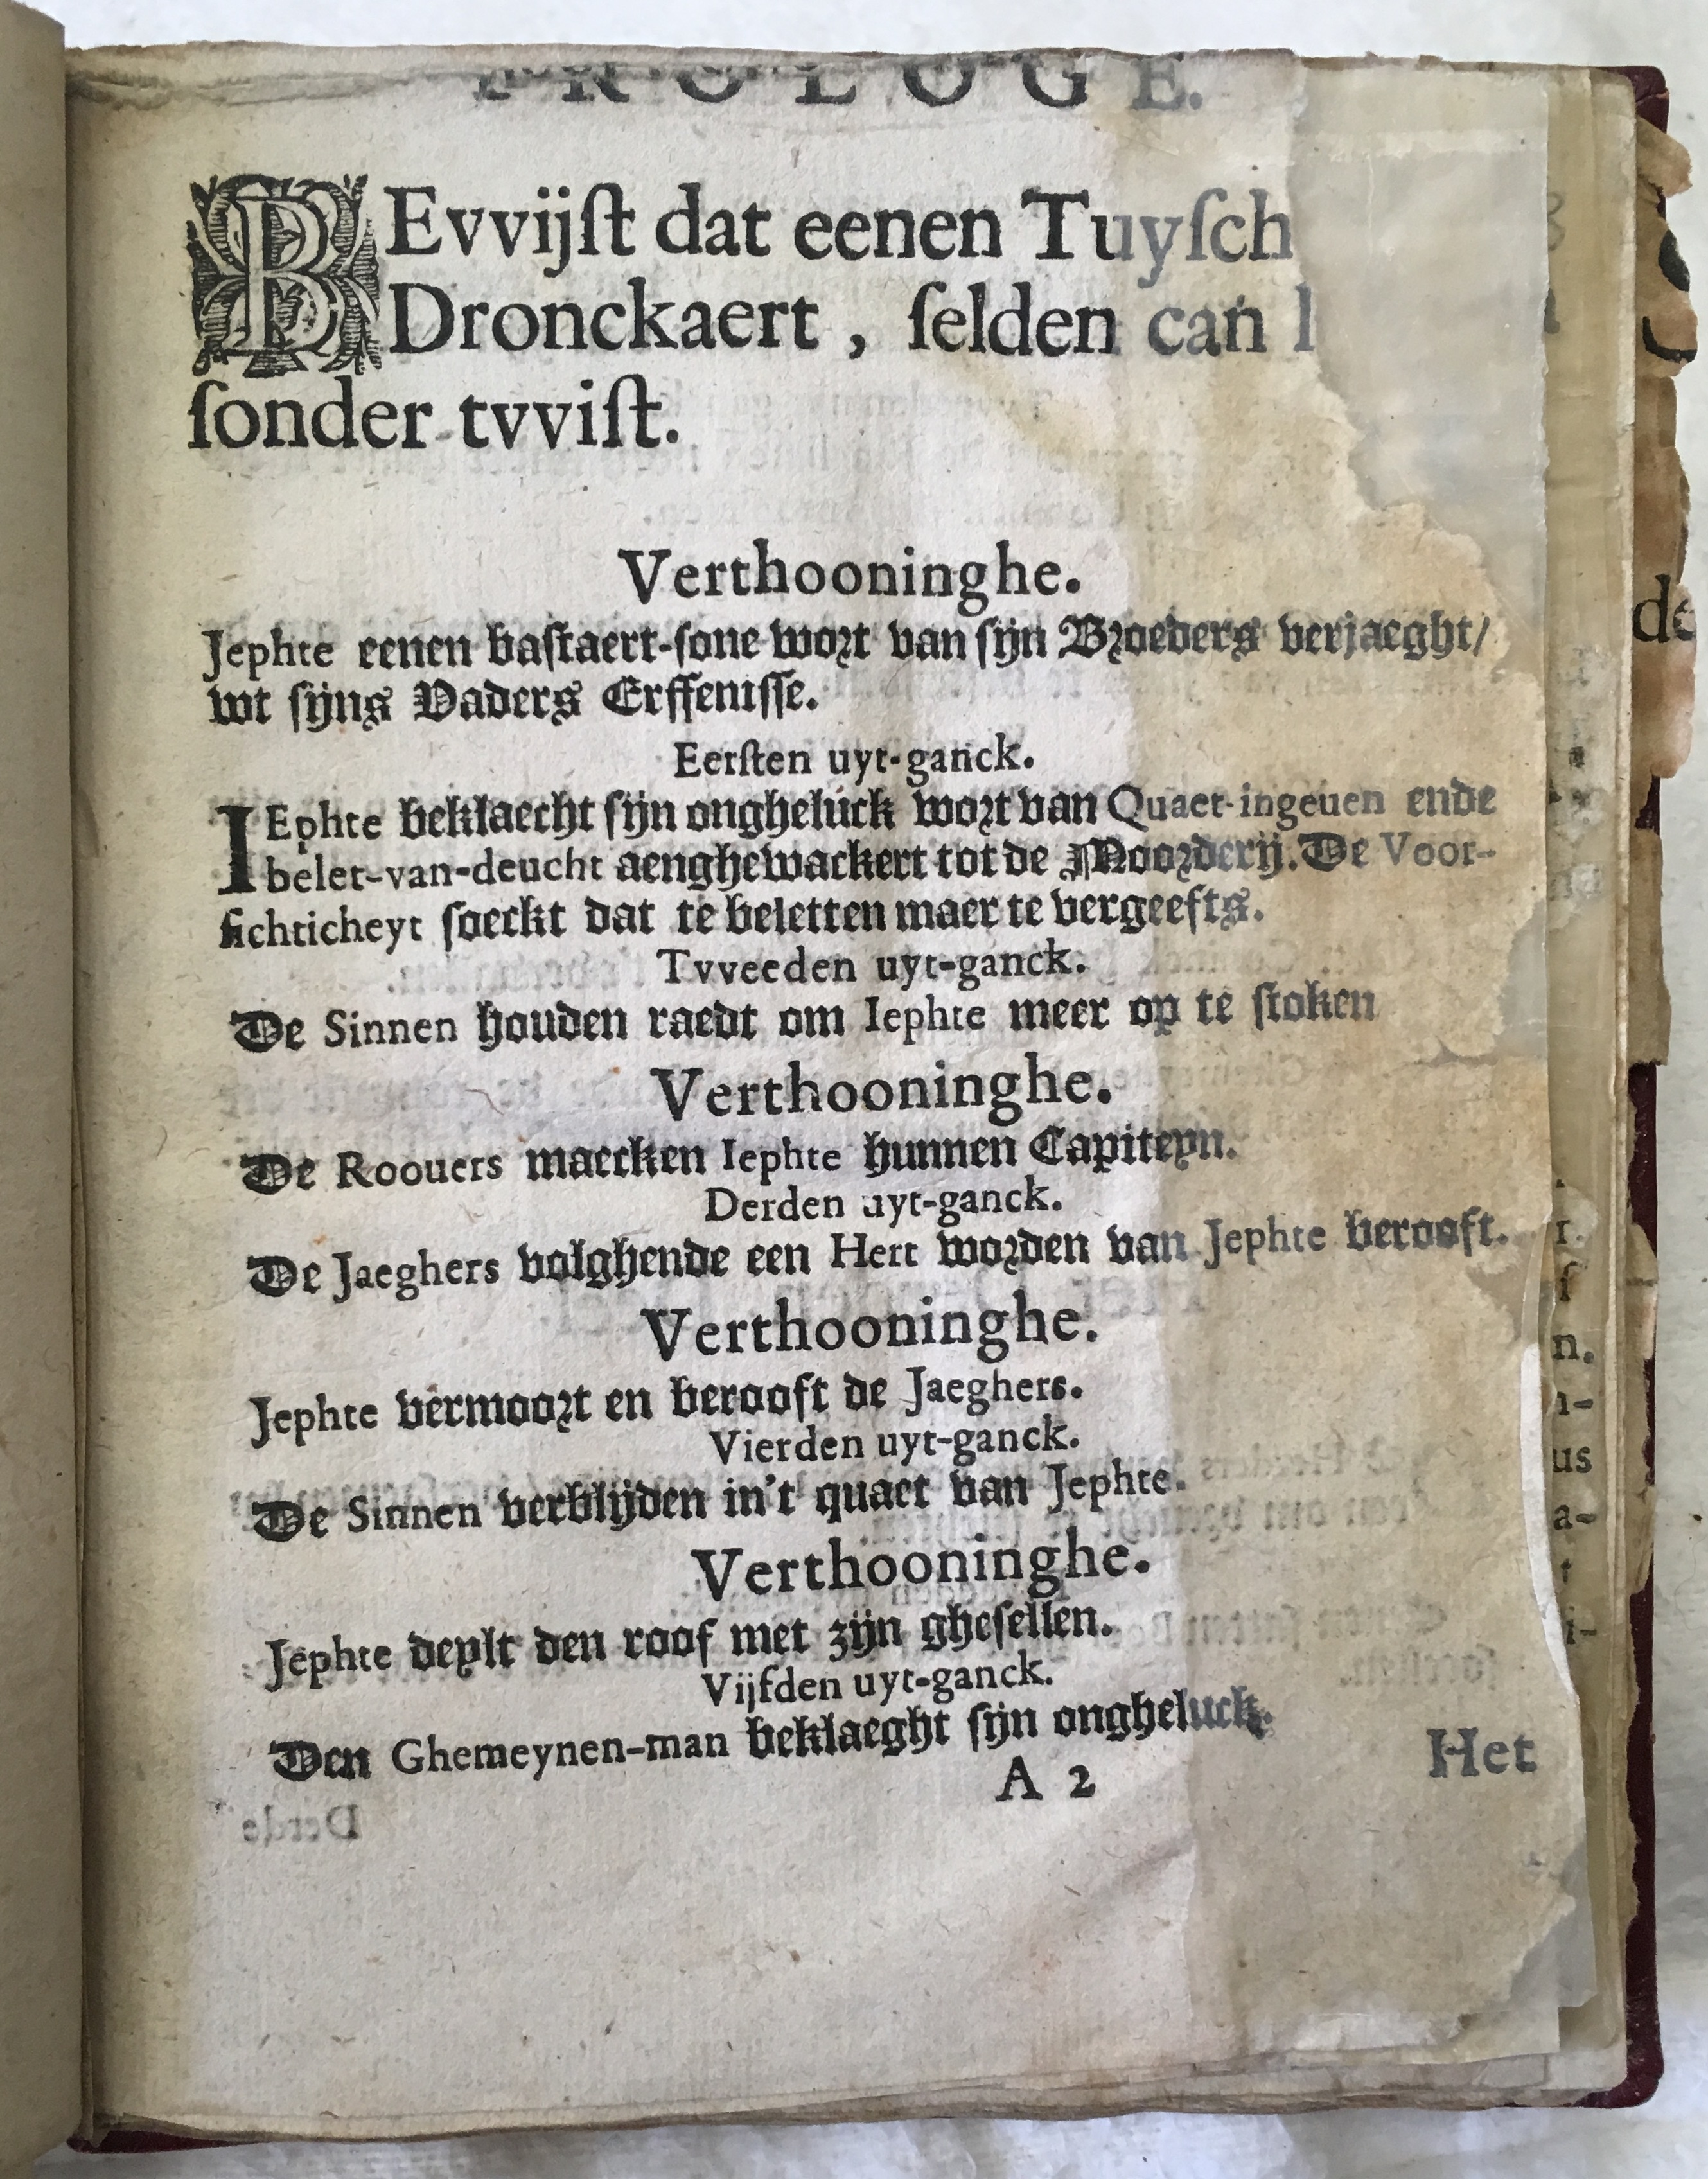 PROLOGE.
BEvvijſt dat eenen Tuyſch
Dronckaert, ſelden can l
ſonder tvviſt.
Verthooninghe.
Jephte eenen baſtaert-ſone wort van ſijn Broeders verjaeght/
wt ſijns Vaders Erffeniſſe.
Eerſten uyt-ganck.
IEphte beklaecht ſijn ongheluck wort van Quaet-ingeuen ende
belet-van-deucht aenghewackert tot de Moorderij. De Voor-
ſichticheyt ſoeckt dat te beletten maer te vergeefts.
Tvveeden uyt-ganck.
De Sinnen houden raedt om Iephte meer op te ſtoken
Verthooninghe.
De Roouers maecken Iephte hunnen Capiteyn.
Derden uyt-ganck.
De Jaeghers volghende een Hert worden van Jephte berooft.
Verthooninghe.
Jephte vermoort en berooft de Jaeghers.
Vierden uyt-ganck.
De Sinnen verblijden in't quaet van Jephte.
Verthooninghe.
Jephte deylt den roof met zijn gheſellen.
Vijfden uyt-ganck.
Den Ghemeynen-man beklaeght ſijn ongheluck.
A 2
Het